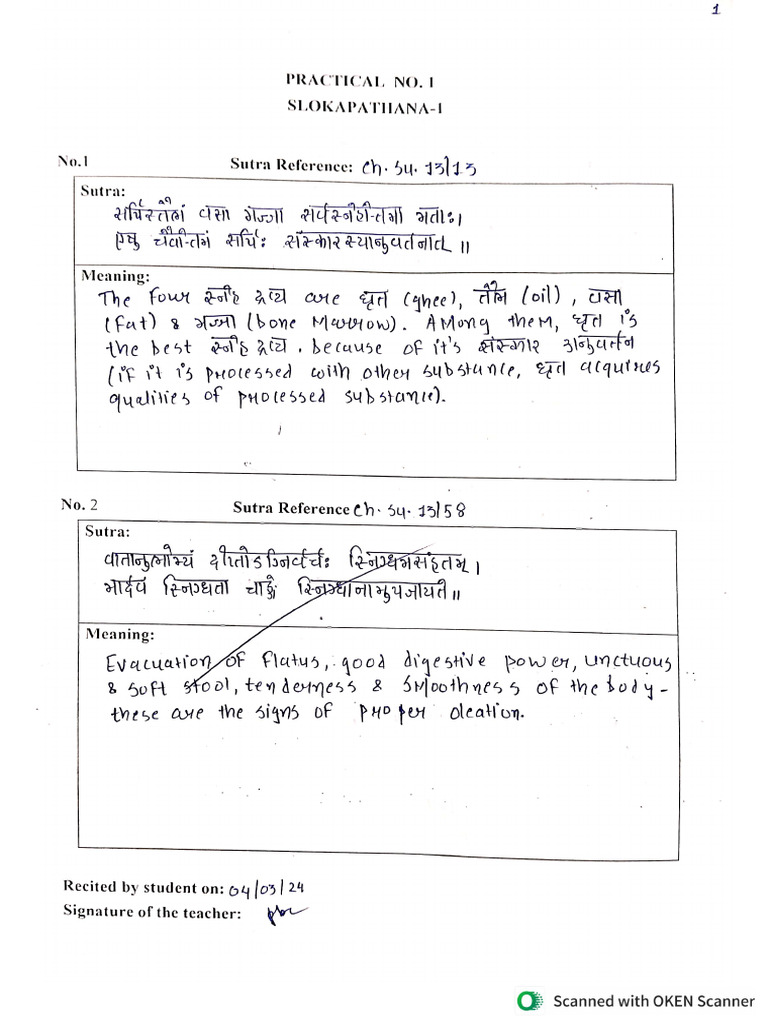 1
PRACTICAL NO. 1
SLOKAPATHANA-1
No.1 Sutra Reference: Ch. Su. 13/13
Sutra:
सर्पिस्तैलं वसा मज्जा सर्वस्नेहोत्तमा मताः।
एषु चैवोत्तमं सर्पिः संस्कारस्यानुवर्तनात् ॥
Meaning:
The four स्नेह द्रव्य are घृत (ghee), तैल (oil), वसा
(fat) & मज्जा (bone marrow). Among them, घृत is
the best स्नेह द्रव्य, because of it's संस्कार अनुवर्तन
(if it is processed with other substance, घृत acquires
qualities of processed substance).
No. 2 Sutra Reference Ch. Su. 13/58
Sutra:
वातानुलोम्यं दीप्तोऽग्निर्वर्चः स्निग्धमसंहतम्।
मार्दवं स्निग्धता चाङ्गे स्निग्धानामुपजायते॥
Meaning:
Evacuation of flatus, good digestive power, unctuous
& soft stool, tenderness & smoothness of the body -
these are the signs of proper oleation.
Recited by student on: 04/03/24
Signature of the teacher:
Scanned with OKEN Scanner